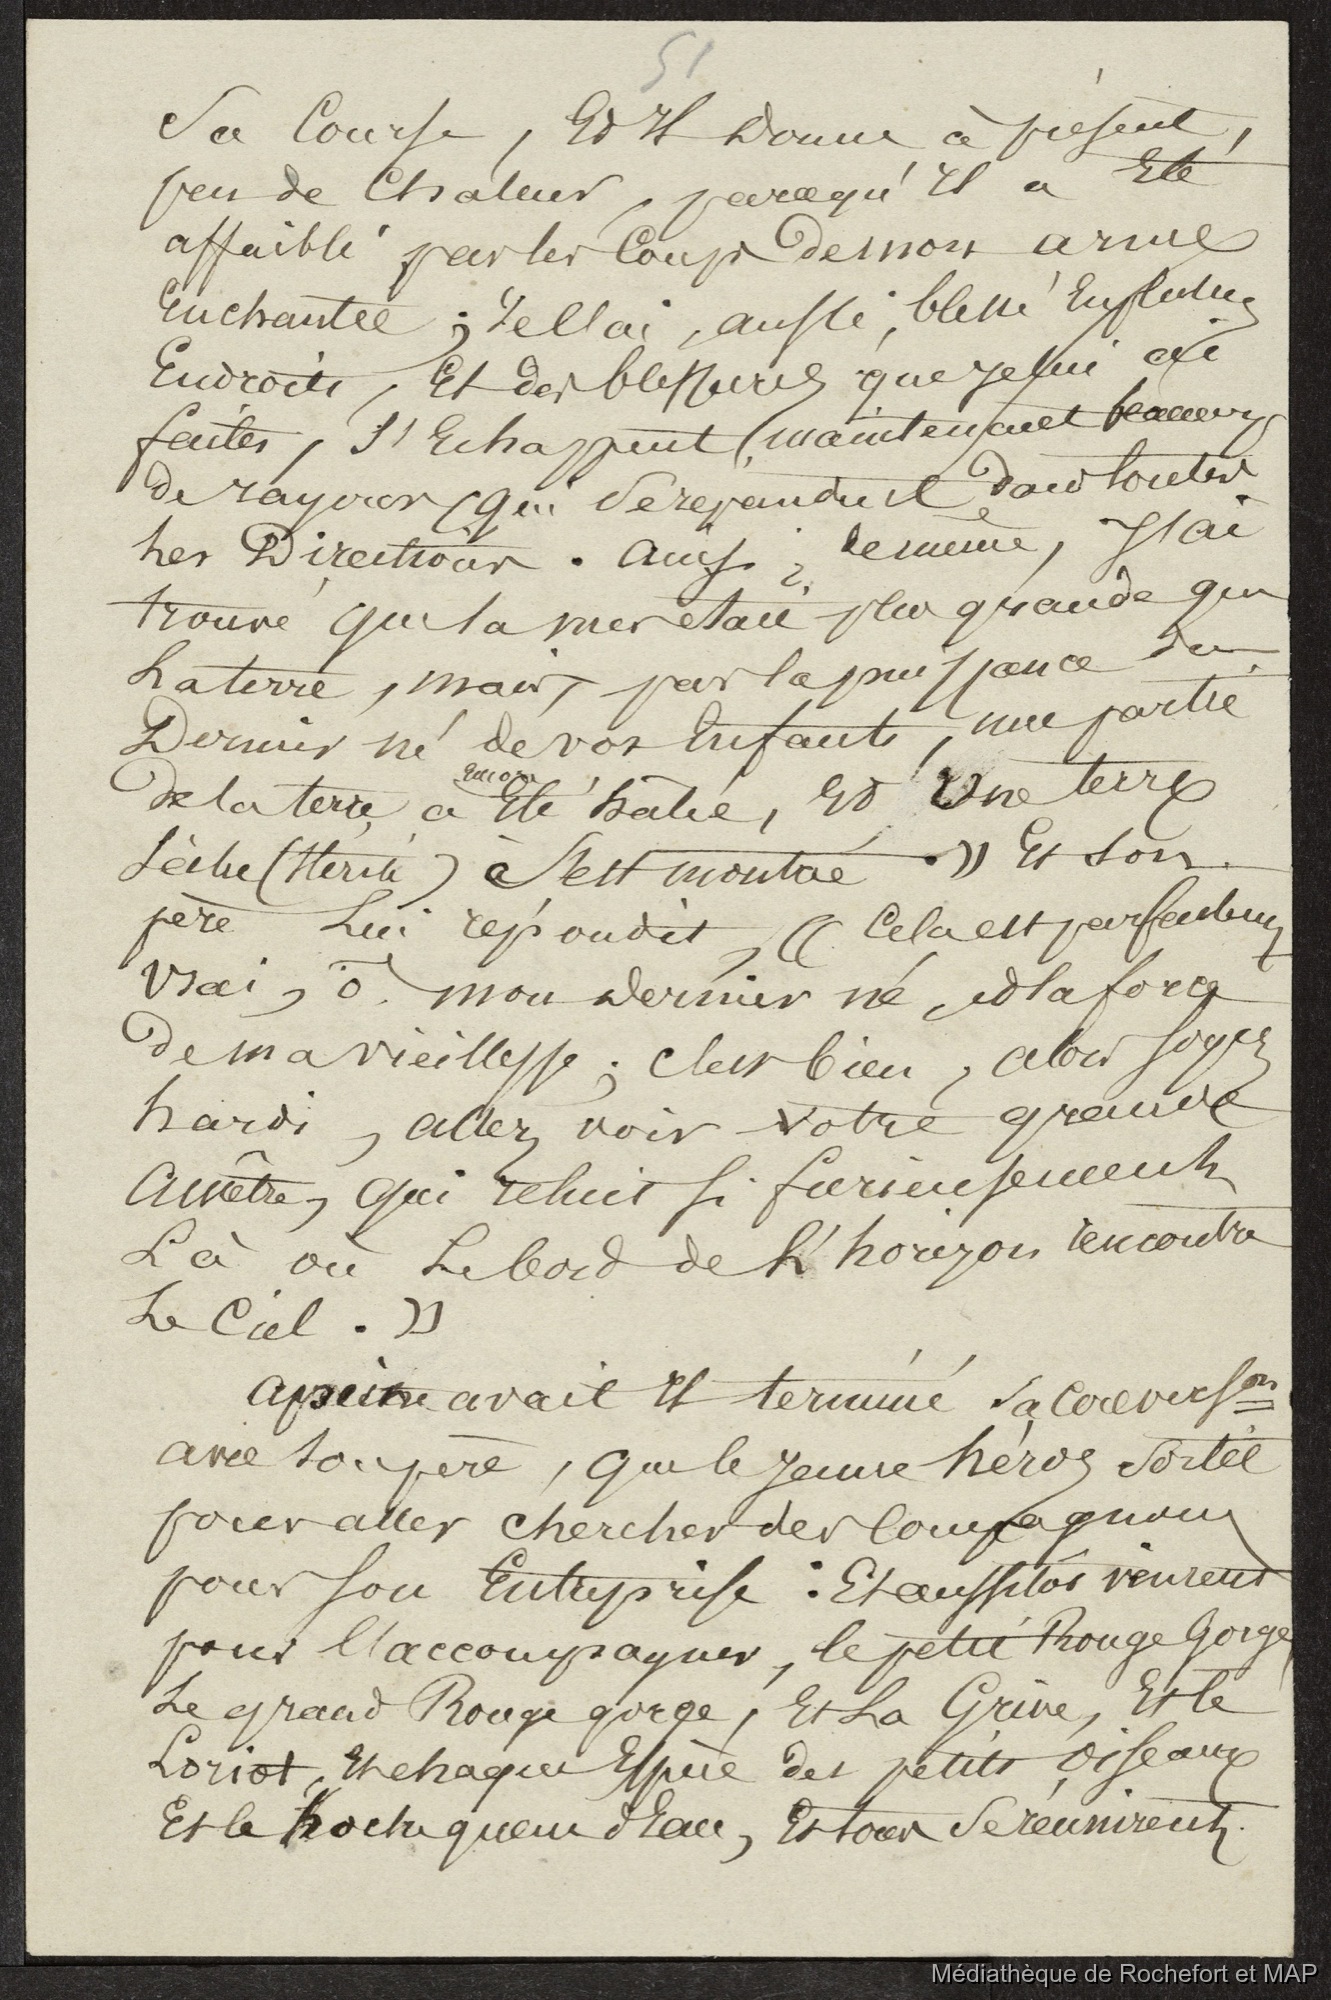 51
Sa Course, Et Il donne à présent,
peu de Chaleur, parcequ'Il a Eté
affaibli par les Coups de mon arme
Enchantée ; Je l'ai, aussi, blessé En plusieurs
Endroits, Et des blessures que je lui ai
faites, S'Echappent, maintenant beaucoup
de rayons, qui Se répandent dans toutes
les Directions. Ainsi, de même, J'ai
trouvé que la mer était plus grande que
la terre, mais, par la puissance du
Dernier né de vos Enfants, une partie
de la terre a Encore Eté halée, Et Une terre
sèche (Stérile) s'est montrée. » Et son
père Lui répondit, « Cela est parfaitement
vrai, ô mon dernier né, et la force
de ma vieillesse ; c'est bien, alors soyez
hardi, allez voir votre grande
Ancêtre, qui reluit si furieusement
Là où Le bord de l'horizon rencontre
Le Ciel. »
A peine avait Il terminé Sa Converson
avec Son père, que le jeune héros Sortit
pour aller chercher des Compagnons
pour son Entreprise : Et aussitôt vinrent
pour l'accompagner, le petit Rouge Gorge,
Le grand Rouge gorge, Et La Grive, Et le
Loriot, Et chaque Espèce des petits Oiseaux
Et le hoche queue d'Eau, Et tous Se réunirent
Médiathèque de Rochefort et MAP